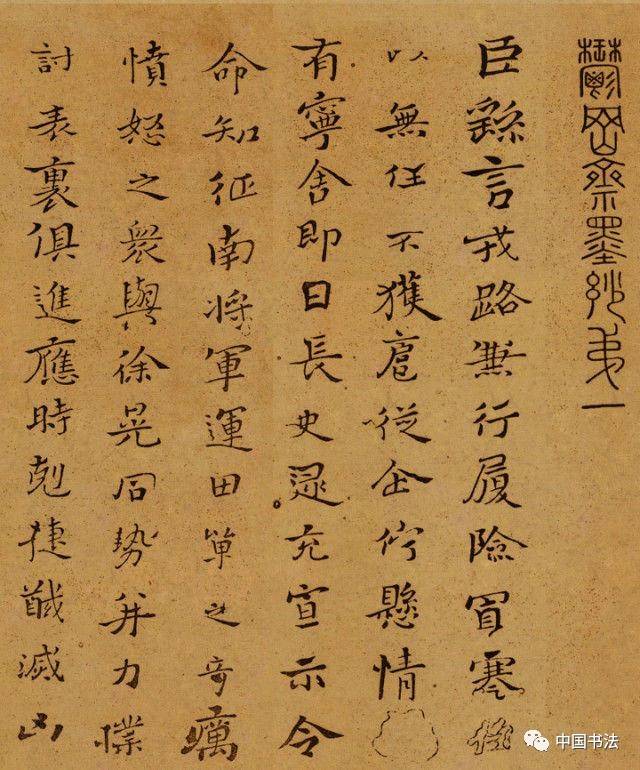 鬱岡齋墨妙弟一
臣繇言戎路兼行履險冒寒
以無任不獲扈從企佇懸情
有寧舍即日長史逯充宣示令
命知征南將軍運田單之奇厲
憤怒之衆與徐晃同勢并力撲
討表裏俱進應時剋捷馘滅凶
中国书法